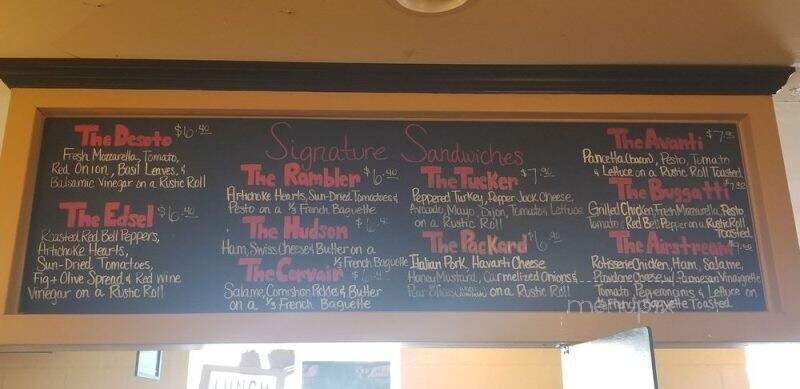 Signature Sandwiches
The Desoto $6.40
Fresh Mozzarella, Tomato,
Red Onion, Basil Leaves, &
Balsamic Vinegar on a Rustic Roll
The Edsel $6.40
Roasted Red Bell Peppers,
Artichoke Hearts,
Sun-Dried Tomatoes,
Fig & Olive Spread & Red Wine
Vinegar on a Rustic Roll
The Rambler $6.40
Artichoke Hearts, Sun-Dried Tomatoes &
Pesto on a 1/3 French Baguette
The Hudson $6.40
Ham, Swiss Cheese & Butter on a
1/3 French Baguette
The Corvair $6.40
Salame, Cornishon Pickles & Butter
on a 1/3 French Baguette
The Tucker $7.90
Peppered Turkey, Pepper Jack Cheese,
Avocado, Mayo, Dijon, Tomato & Lettuce
on a Rustic Roll
The Packard $6.90
Italian Pork, Havarti Cheese
Honey Mustard, Carmelized Onions &
on a Rustic Roll
The Avanti $7.90
Pancetta (bacon), Pesto, Tomato
& Lettuce on a Rustic Roll Toasted
The Buggatti 7.90
Grilled Chicken, Fresh Mozzarella, Pesto
Tomato & Red Bell Pepper on a Rustic Roll
Toasted
The Airstream
Rotisserie Chicken, Ham, Salame,
Provolone Cheese, w/ Parmesan Vinaigrette
Tomato, Pepperoncinis & Lettuce on
1/3 French Baguette Toasted
LUNCH